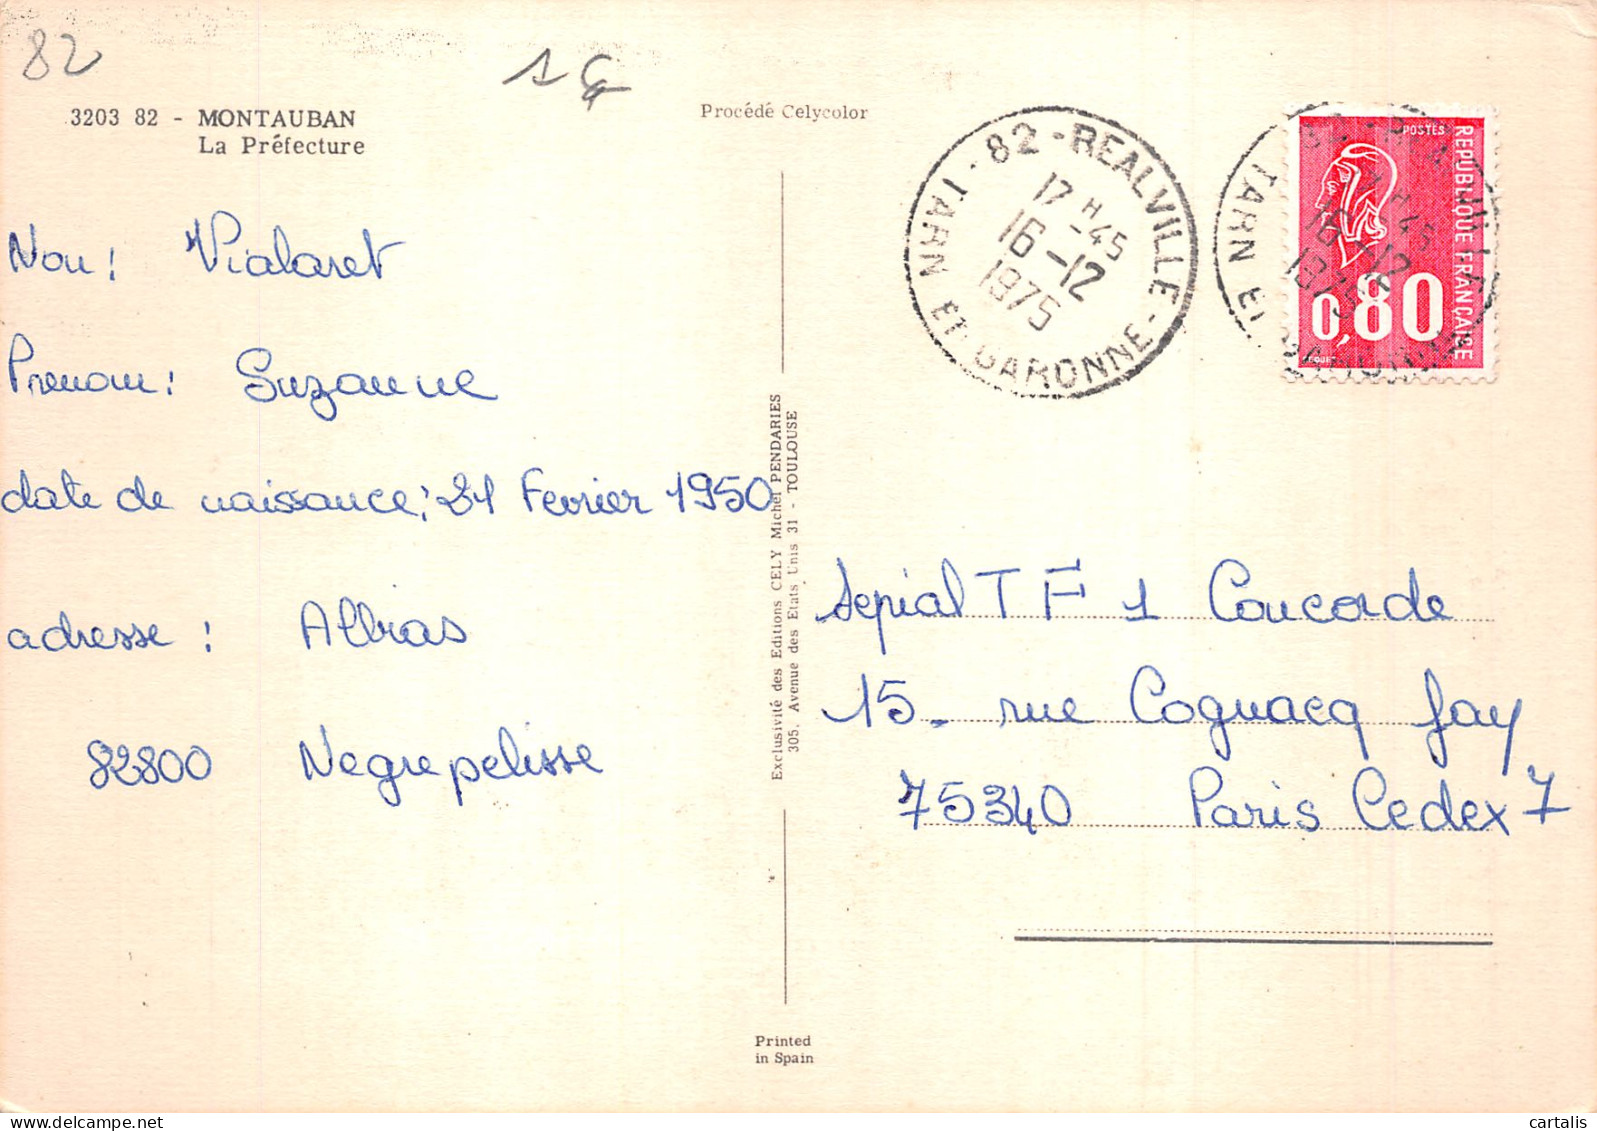 82
3203 82 - MONTAUBAN
La Préfecture
Procédé Celycolor
82 - REALVILLE -
17 H 45
16 - 12
1975
TARN ET GARONNE
POSTES
REPUBLIQUE FRANÇAISE
0,80
TARN ET
16 - 12
1975
Nou : Vialaret
Prenom : Suzanne
date de naissance : 21 Fevrier 1950
adresse : Albias
82800 Negrepelisse
Exclusivité des Editions CELY Michel PENDARIES
305, Avenue des Etats Unis 31 - TOULOUSE
Sepial T F 1 Concorde
15 - rue Cognacq Jay
75340 Paris Cedex 7
Printed
in Spain
cartalis